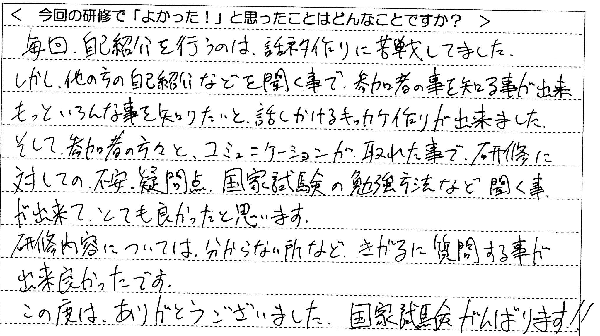 < 今回の研修で「よかった!」と思ったことはどんなことですか? >
毎回、自己紹介を行うのは、話ネタ作りに苦戦してました。
しかし、他の方の自己紹介などを聞く事で、参加者の事を知る事が出来
もっといろんな事を知りたいと、話しかけるキッカケ作りが出来ました。
そして、参加者の方々と、コミュニケーションが取れた事で、研修に
対しての不安、疑問点、国家試験の勉強方法など聞く事
が出来て、とても良かったと思います。
研修内容については、分からない所など、きがるに質問する事が
出来良かったです。
この度は、ありがとうございました。国家試験がんばります!!